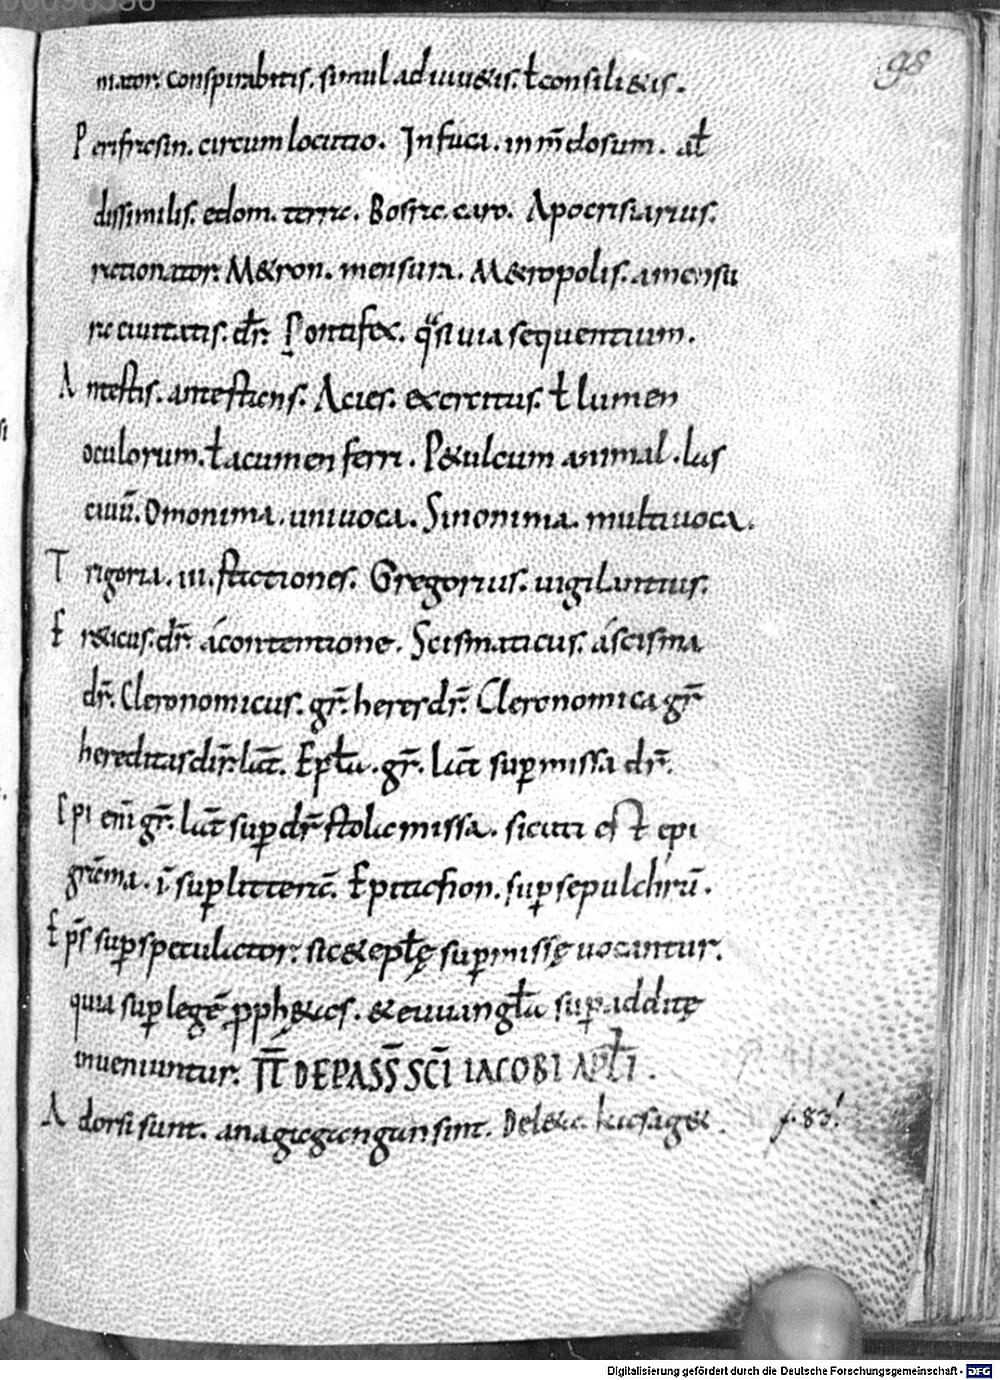 98
mator. conspirabitis. simul adiuu&is. ł consili&is.
Perifrasin. circumlocutio. Infuca. inm̄dosum. ał
dissimilis. edom. terra. Bosra. caro. Apocrisiarius.
rationator. M&ron. mensura. M&ropolis. amensu
ra ciuitatis. dr̄. Pontifex. qͣsi uia sequentium.
Antestis. antestans. Acies. exercitus. ł lumen
oculorum. ł acumen ferri. P&ulcum animal. las
ciuū. Omonima. uniuoca. Sinonima. multiuoca.
Trigoria. iii. stationes. Gregorius. uigilantius.
Er&icus. dr̄. acontentione. Scismaticus. ascisma
dr̄. Cleronomicus. gr̄. heres dr̄. Cleronomica gr̄
hereditas dir̄. lat̄. Epła. gr̄. lat̄ suꝑmissa dr̄.
Epi enī gr̄. lat̄ suꝑ dr̄ stola missa. sicuti est epi
grāma. ī suꝑ litterā. Epitafion. suꝑ sepulchrū.
Ep̄s suꝑspeculator. sic & epłę suꝑmissę uocantur.
quia suꝑ legē ꝓph&as. & euuangła suꝑadditę
inueniuntur. IT̄ DE PASS̄ SCĪ IACOBI APŁI.
Adorsi sunt. anagagangan sint. Del&a. kasag&. f. 83'
Digitalisierung gefördert durch die Deutsche Forschungsgemeinschaft - DFG